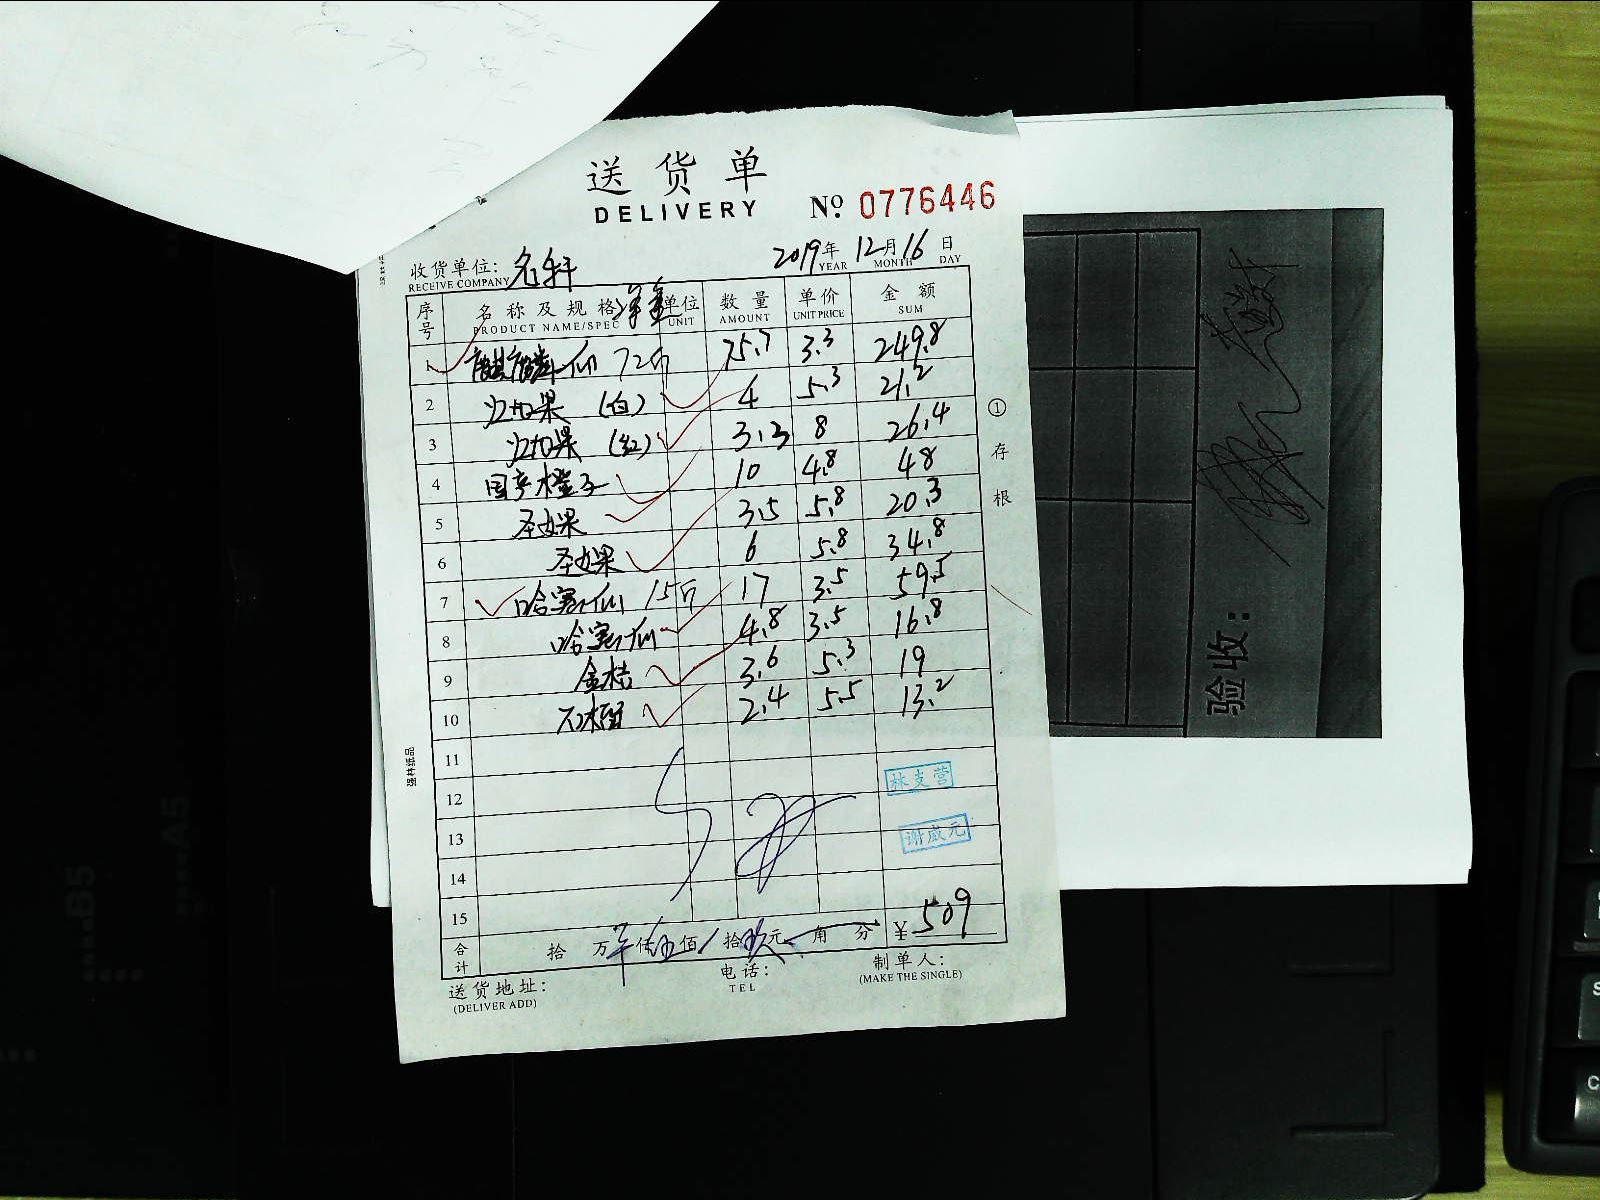 送货单
DELIVERY
№ 0776446
收货单位: 名轩
RECEIVE COMPANY
2019年 12月 16日
YEAR MONTH DAY
序号 名称及规格 单位 数量 单价 金额
PRODUCT NAME/SPEC UNIT AMOUNT UNIT PRICE SUM
1 麒麟瓜 72斤 75.7 3.3 249.8
2 火龙果 (白) 4 5.3 21.2
3 火龙果 (红) 3.3 8 26.4
4 国产橙子 10 4.8 48
5 圣女果 3.5 5.8 20.3
6 圣女果 6 5.8 34.8
7 哈密瓜 15斤 17 3.5 59.5
8 哈密瓜 4.8 3.5 16.8
9 金桔 3.6 5.3 19
10 石榴 2.4 5.5 13.2
11
12
13
14
15
林支营
谢威元
合计 拾 万 仟 伍 佰 拾 玖 元 角 分 ¥ 509
送货地址:
(DELIVER ADD)
电话:
TEL
制单人:
(MAKE THE SINGLE)
①存根
验收:
B5
A5